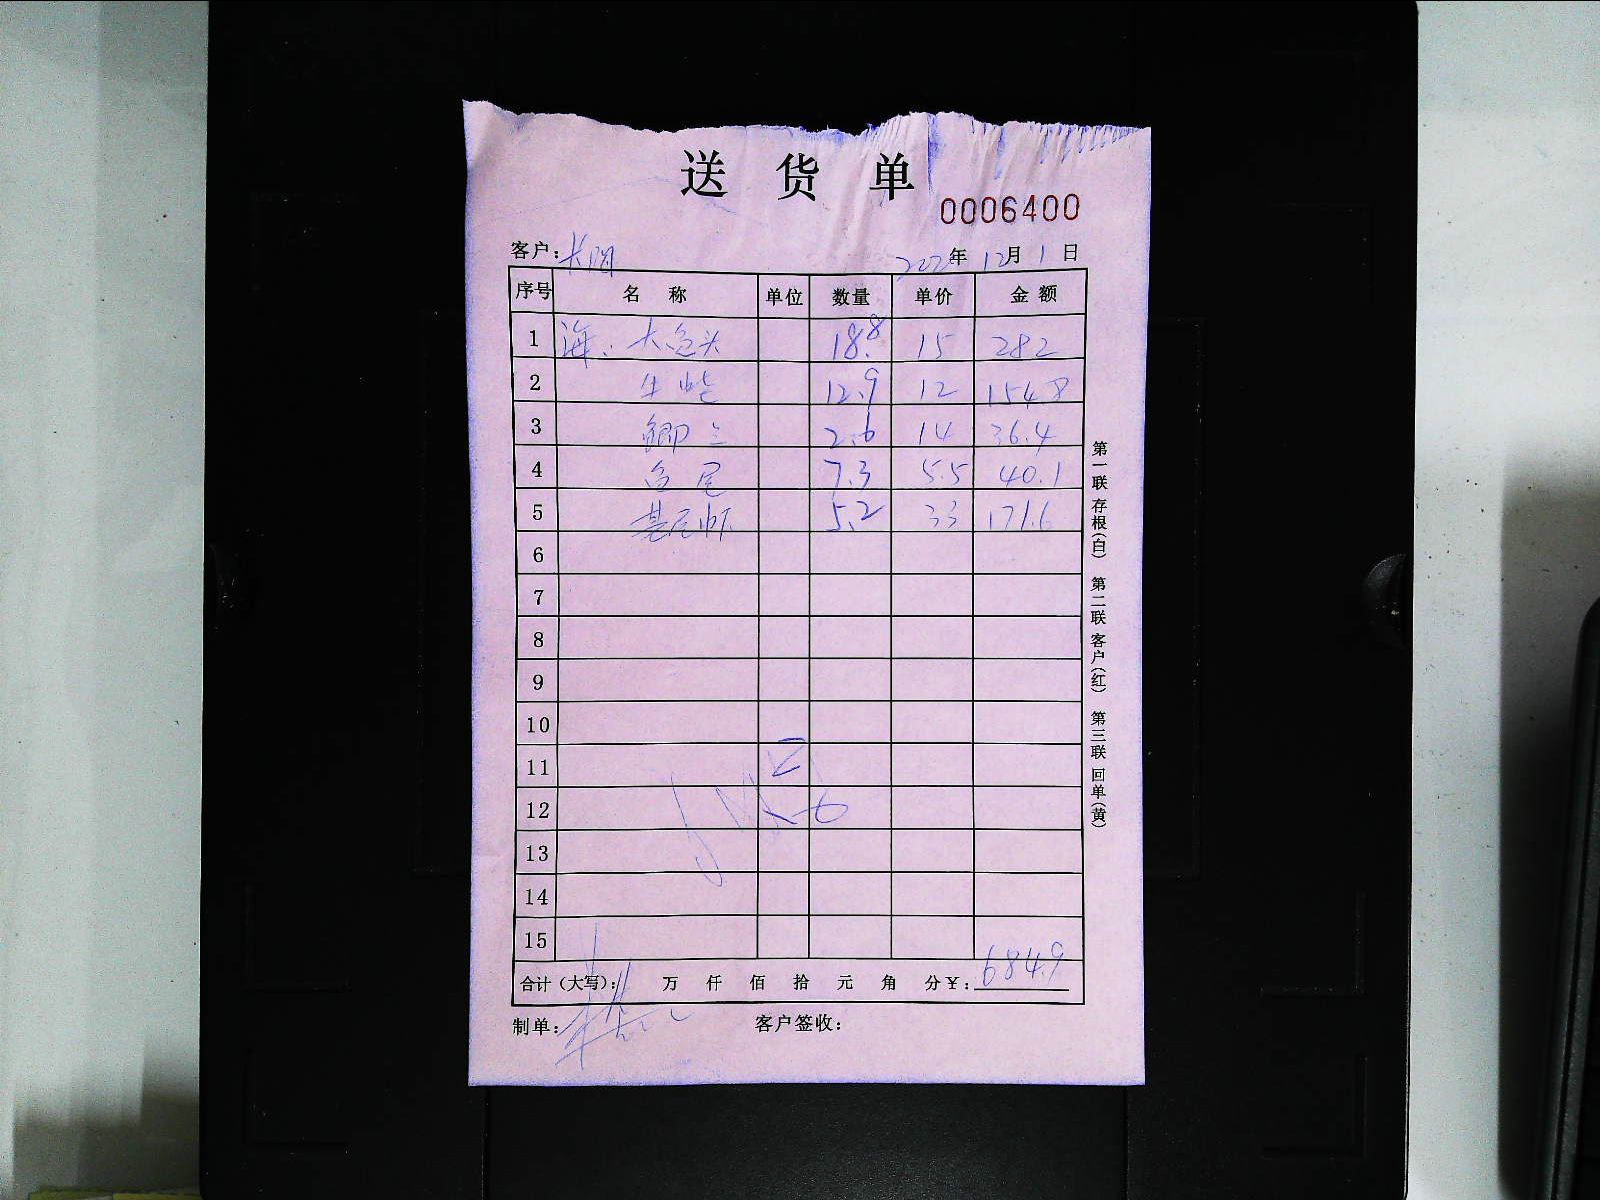 送 货 单
0006400
客户: 长阳 年 12月 1 日
序号 名 称 单位 数量 单价 金 额
1 海: 大鱼头 18.8 15 282
2 12.9 12 154.8
3 鲫 2.6 14 36.4
4 鱼尾 7.3 5.5 40.1
5 基尾虾 5.2 33 171.6
6
7
8
9
10
11
12
13
14
15
合计(大写): 万 仟 佰 拾 元 角 分 ¥: 684.9
制单: 客户签收:
第一联 存根(白) 第二联 客户(红) 第三联 回单(黄)